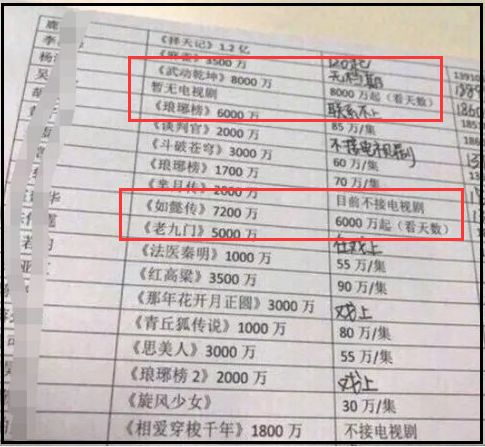 鹿
《择天记》1.2 亿
李
《麻雀》3500 万
120起
杨
《武动乾坤》8000 万
无档期
13910
吴
暂无电视剧
8000 万起（看天数）
《琅琊榜》6000 万
联系不上
1860
《谈判官》2000 万
85 万/集
《斗破苍穹》3000 万
不接电视剧
《琅琊榜》1700 万
60 万/集
《芈月传》2000 万
70 万/集
华
《如懿传》7200 万
目前不接电视剧
《老九门》5000 万
6000 万起（看天数）
《法医秦明》1000 万
在戏上
《红高粱》3500 万
55 万/集
《那年花开月正圆》3000 万
90 万/集
《青丘狐传说》1000 万
戏上
《思美人》3000 万
80 万/集
《琅琊榜 2》2000 万
55 万/集
《旋风少女》
戏上
《相爱穿梭千年》1800 万
30 万/集
不接电视剧